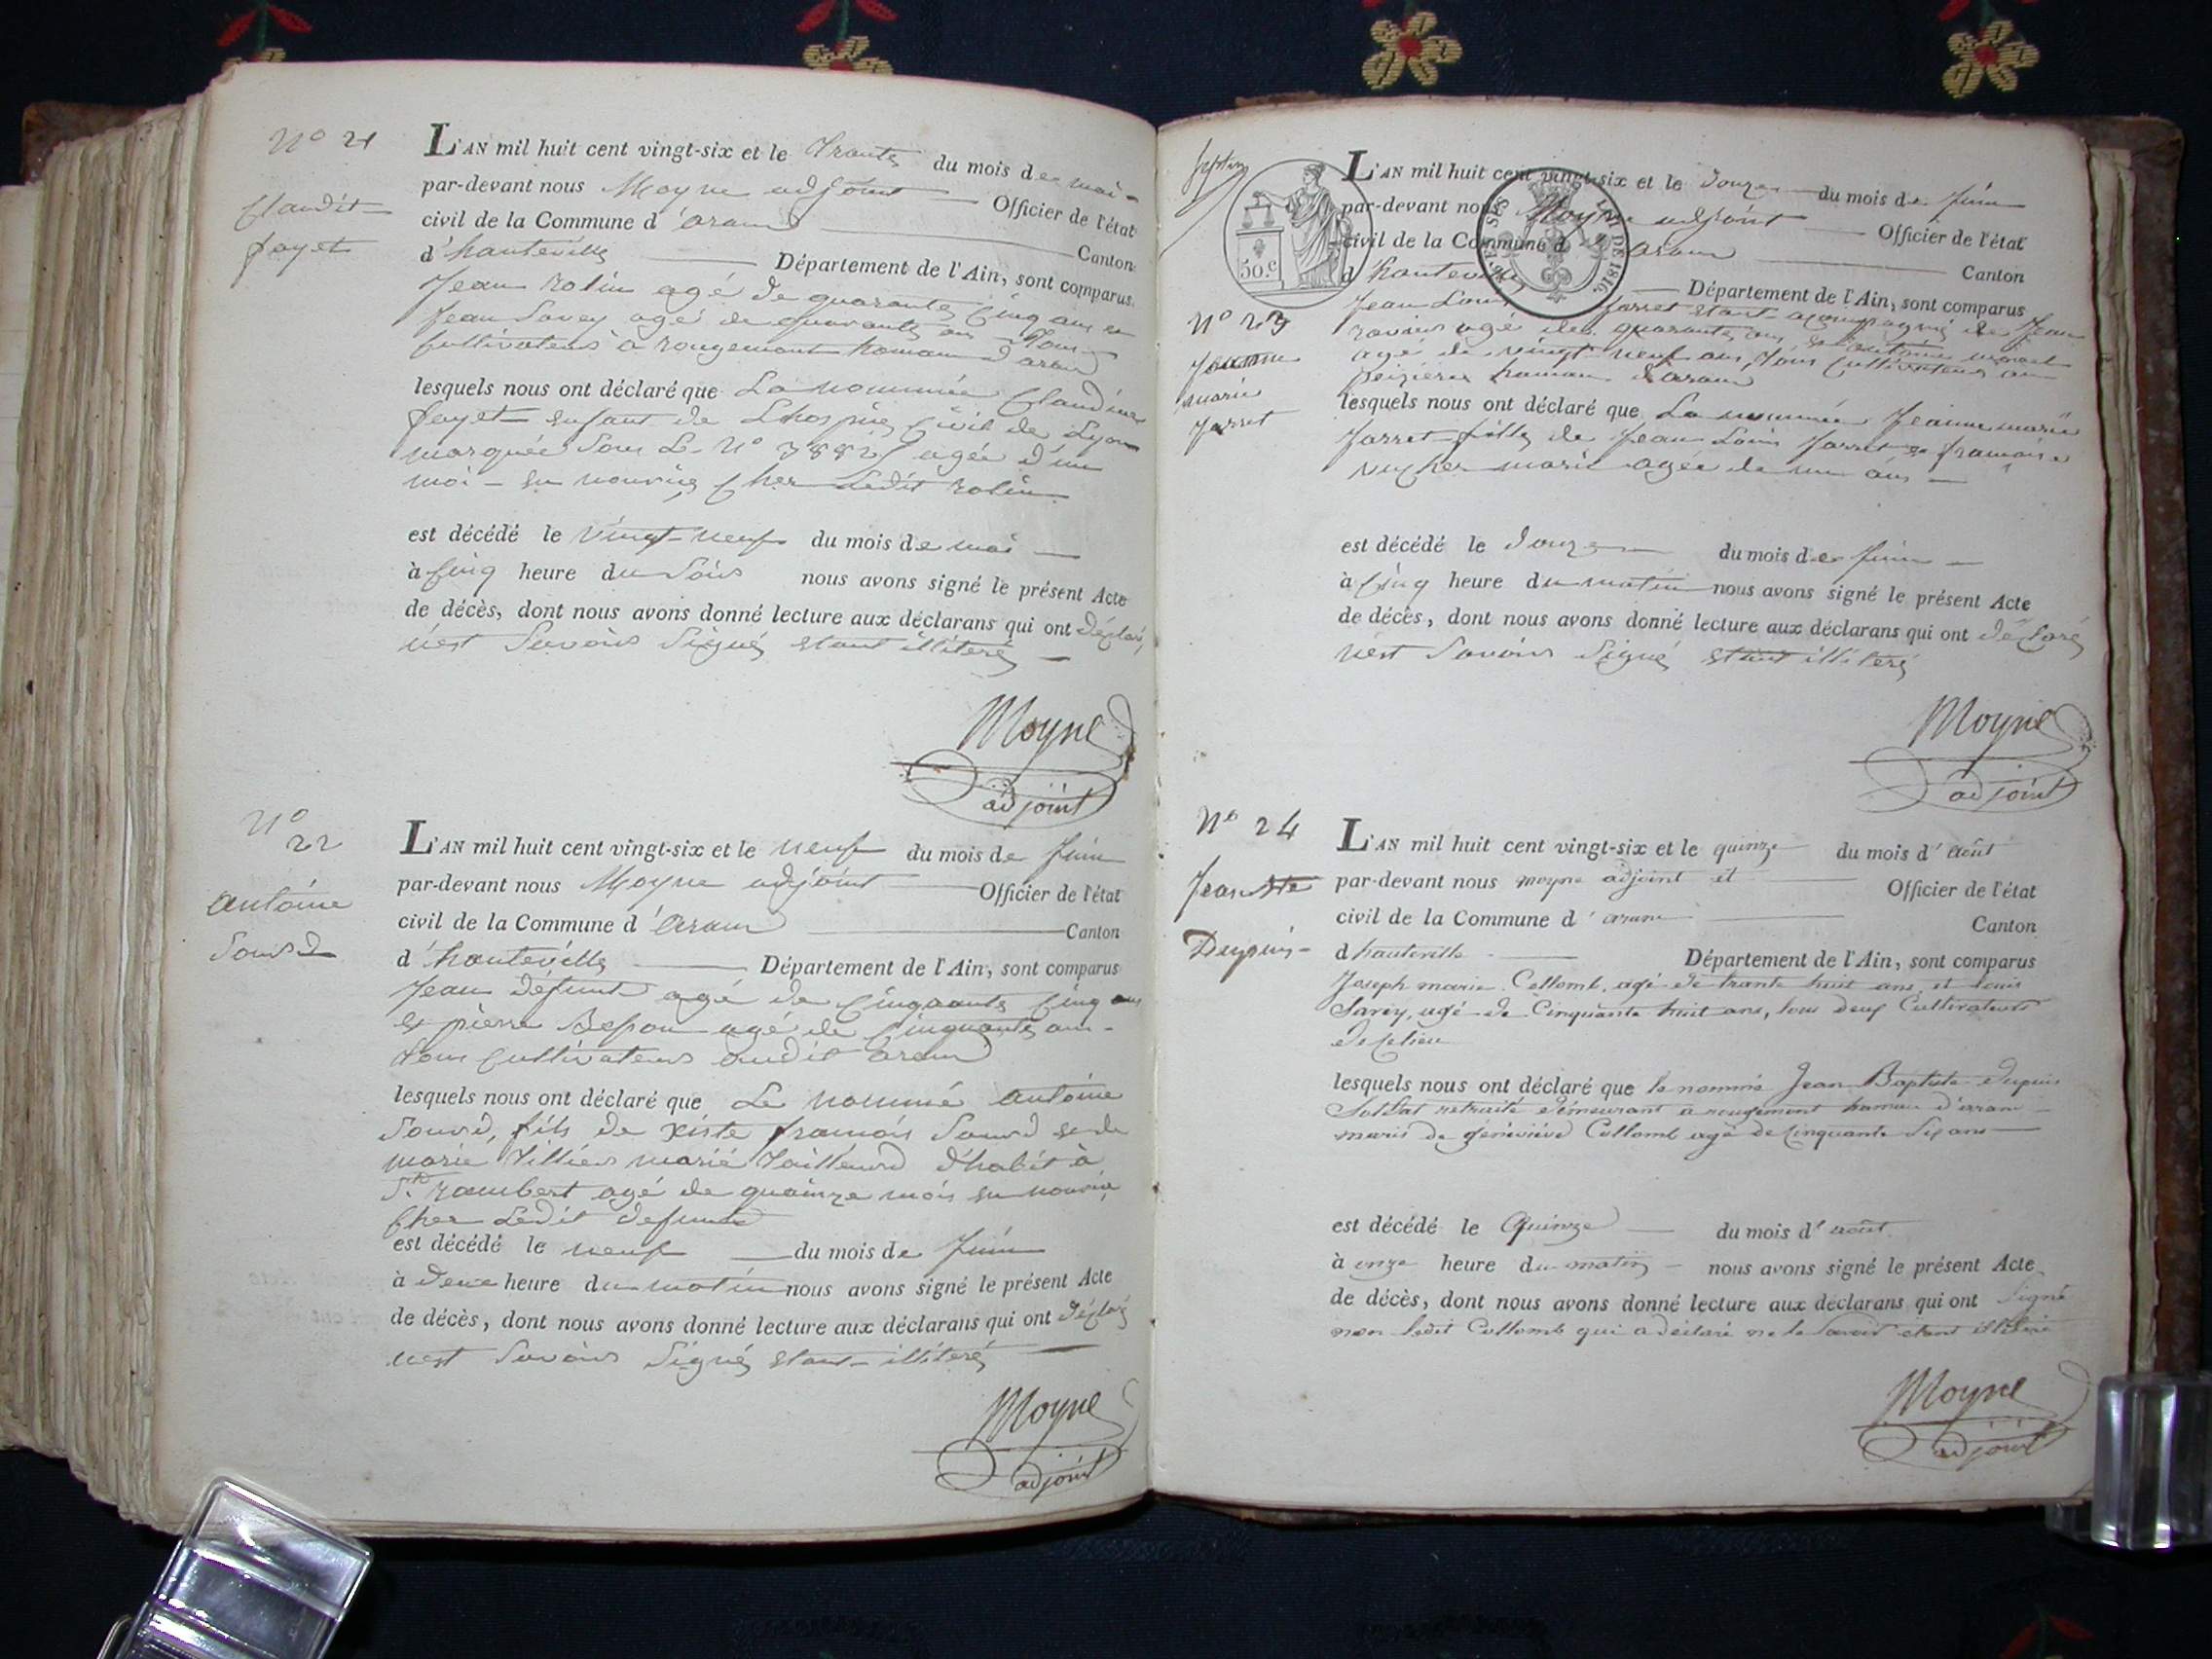 N° 21
Claudit
fayet
L'AN mil huit cent vingt-six et le trante du mois de mai
par-devant nous Moyne adjoint Officier de l'état
civil de la Commune d'aran Canton
d'hauteville Département de l'Ain, sont comparus
Jean rolin agé de quarante Cinq ans et
Jean Savey agé de quarante ans tous
Cultivateurs à rougemont hamau d'aran
lesquels nous ont déclaré que La nommée Claudine
fayet enfant de Lhospice Civil de Lyon
marquée Sous L. N° 3882 agée d'un
moi en nourrice Cher Ledit rolin
est décédé le vingt-neuf du mois de mai
à Cinq heure du Soir nous avons signé le présent Acte
de décès, dont nous avons donné lecture aux déclarans qui ont déclaré
nest Savoir Signé etant illiteré
Moyne
adjoint
N°
22
antoine
Sourd
L'AN mil huit cent vingt-six et le neuf du mois de Juin
par-devant nous Moyne adjoint Officier de l'état
civil de la Commune d'aran Canton
d'hauteville Département de l'Ain, sont comparus
Jean défunt agé de Cinquante Cinq ans
et pierre Besson agé de Cinquante ans
tous Cultivateurs audit aran
lesquels nous ont déclaré que Le nommé antoine
Sourd, fils de xiste framois Sourd et de
marie tilliers marié tailleurd d'habit à
St rambert agé de quainze mois en nourrice
Cher Ledit defunt
est décédé le neuf du mois de Juin
à deux heure du matin nous avons signé le présent Acte
de décès, dont nous avons donné lecture aux déclarans qui ont déclaré
nest Savoir Signé etant illiteré
Moyne
adjoint
50.c
LOI DE 1816.
L'AN mil huit cent vingt-six et le douze du mois de Juin
par-devant nous Moyne adjoint Officier de l'état
civil de la Commune d'aran Canton
d'hauteville Département de l'Ain, sont comparus
N° 23
Jeanne
marie
Jarret
Jean Louis Jarret etant acompagné de Jean
ravier agé de quarante ans et antoine
agé de vingt neuf ans, tous Cultivateurs au
hamau d'aran
lesquels nous ont déclaré que La nommée Jeanne marie
Jarret fille de Jean Louis Jarret et framoise
marié agée de un ans
est décédé le douze du mois de Juin
à Cinq heure du matin nous avons signé le présent Acte
de décès, dont nous avons donné lecture aux déclarans qui ont déclaré
nest Savoir Signé etant illiteré
Moyne
adjoint
N° 24
Jean Bte
Dupuis
L'AN mil huit cent vingt-six et le quinze du mois d'août
par-devant nous moyne adjoint et Officier de l'état
civil de la Commune d'aran Canton
d'hauteville Département de l'Ain, sont comparus
Joseph marie Collomb, agé de trante huit ans et louis
Savey, agé de Cinquante huit ans, tous deux Cultivateurs
de Ce lieu
lesquels nous ont déclaré que le nommé Jean Baptiste dupuis
Soldat retraité demeurant a rougemont hamau d'aran
maris de géneviéve Collomb agé de Cinquante Six ans
est décédé le Quinze du mois d'août
à onze heure du matin nous avons signé le présent Acte
de décès, dont nous avons donné lecture aux déclarans qui ont Signé
non ledit Collomb qui a déclaré ne le Savoir etant illiteré
Moyne
adjoint